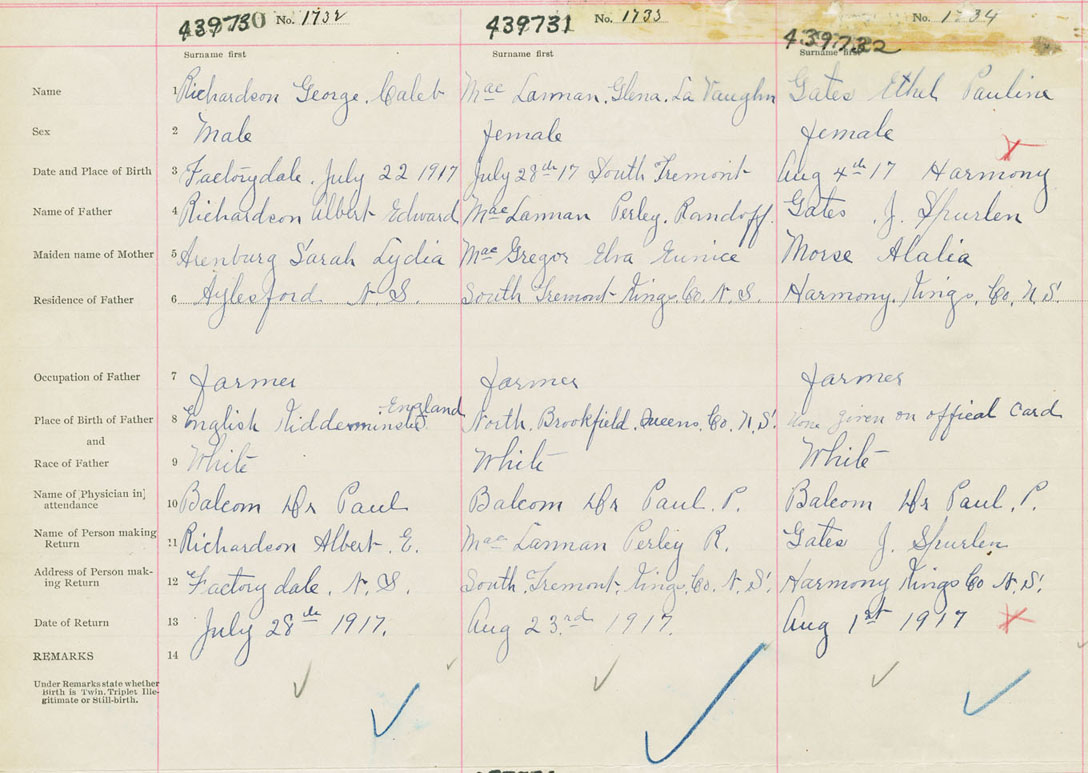 439730 No. 1732 439731 No. 1733 439732 No. 1734
Surname first Surname first Surname first
Name 1 Richardson George Caleb Mac Lannan, Glena, La Vaughn Gates Ethel Pauline
Sex 2 Male female female
Date and Place of Birth 3 Factorydale, July 22 1917 July 28th 17 South Tremont Aug 4th 17 Harmony
Name of Father 4 Richardson Albert Edward Mac Lannan Perley, Randoff. Gates J. Spurlen
Maiden name of Mother 5 Arenburg Sarah Lydia Mac Gregor Elva Eunice Morse Alalia
Residence of Father 6 Aylesford N S. South Tremont Kings Co. N. S. Harmony, Kings, Co, N, S.
Occupation of Father 7 farmer farmer farmer
England
Place of Birth of Father 8 English Kidderminster North, Brookfield, Queens, Co. N. S. None given on offical card
and
Race of Father 9 White White White
Name of Physician in
attendance 10 Balcom Dr Paul Balcom Dr Paul, P. Balcom Dr Paul, P.
Name of Person making
Return 11 Richardson Albert. E. Mac Lannan Perley R. Gates J. Spurlen
Address of Person mak-
ing Return 12 Factorydale, N. S. South, Tremont, Kings, Co, N. S. Harmony Kings Co N. S.
Date of Return 13 July 28th 1917. Aug 23rd 1917. Aug 1st 1917
REMARKS 14
Under Remarks state whether
Birth is Twin, Triplet Ille-
gitimate or Still-birth.